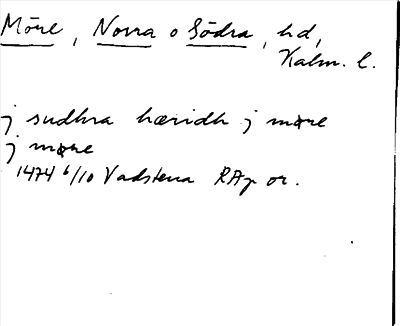 Möre, Norra o Södra, hd,
Kalm. l.
j sudhra hæridh j møre
j møre
1474 6/10 Vadstena RAp or.